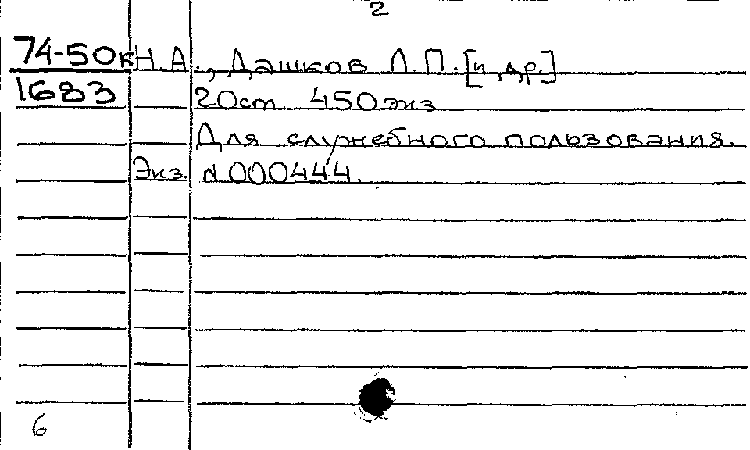 2
74-50к Н.А., Дашков Л.П. [и др.]
1683 20см 450экз
Для служебного пользования.
Экз. №000444.
6